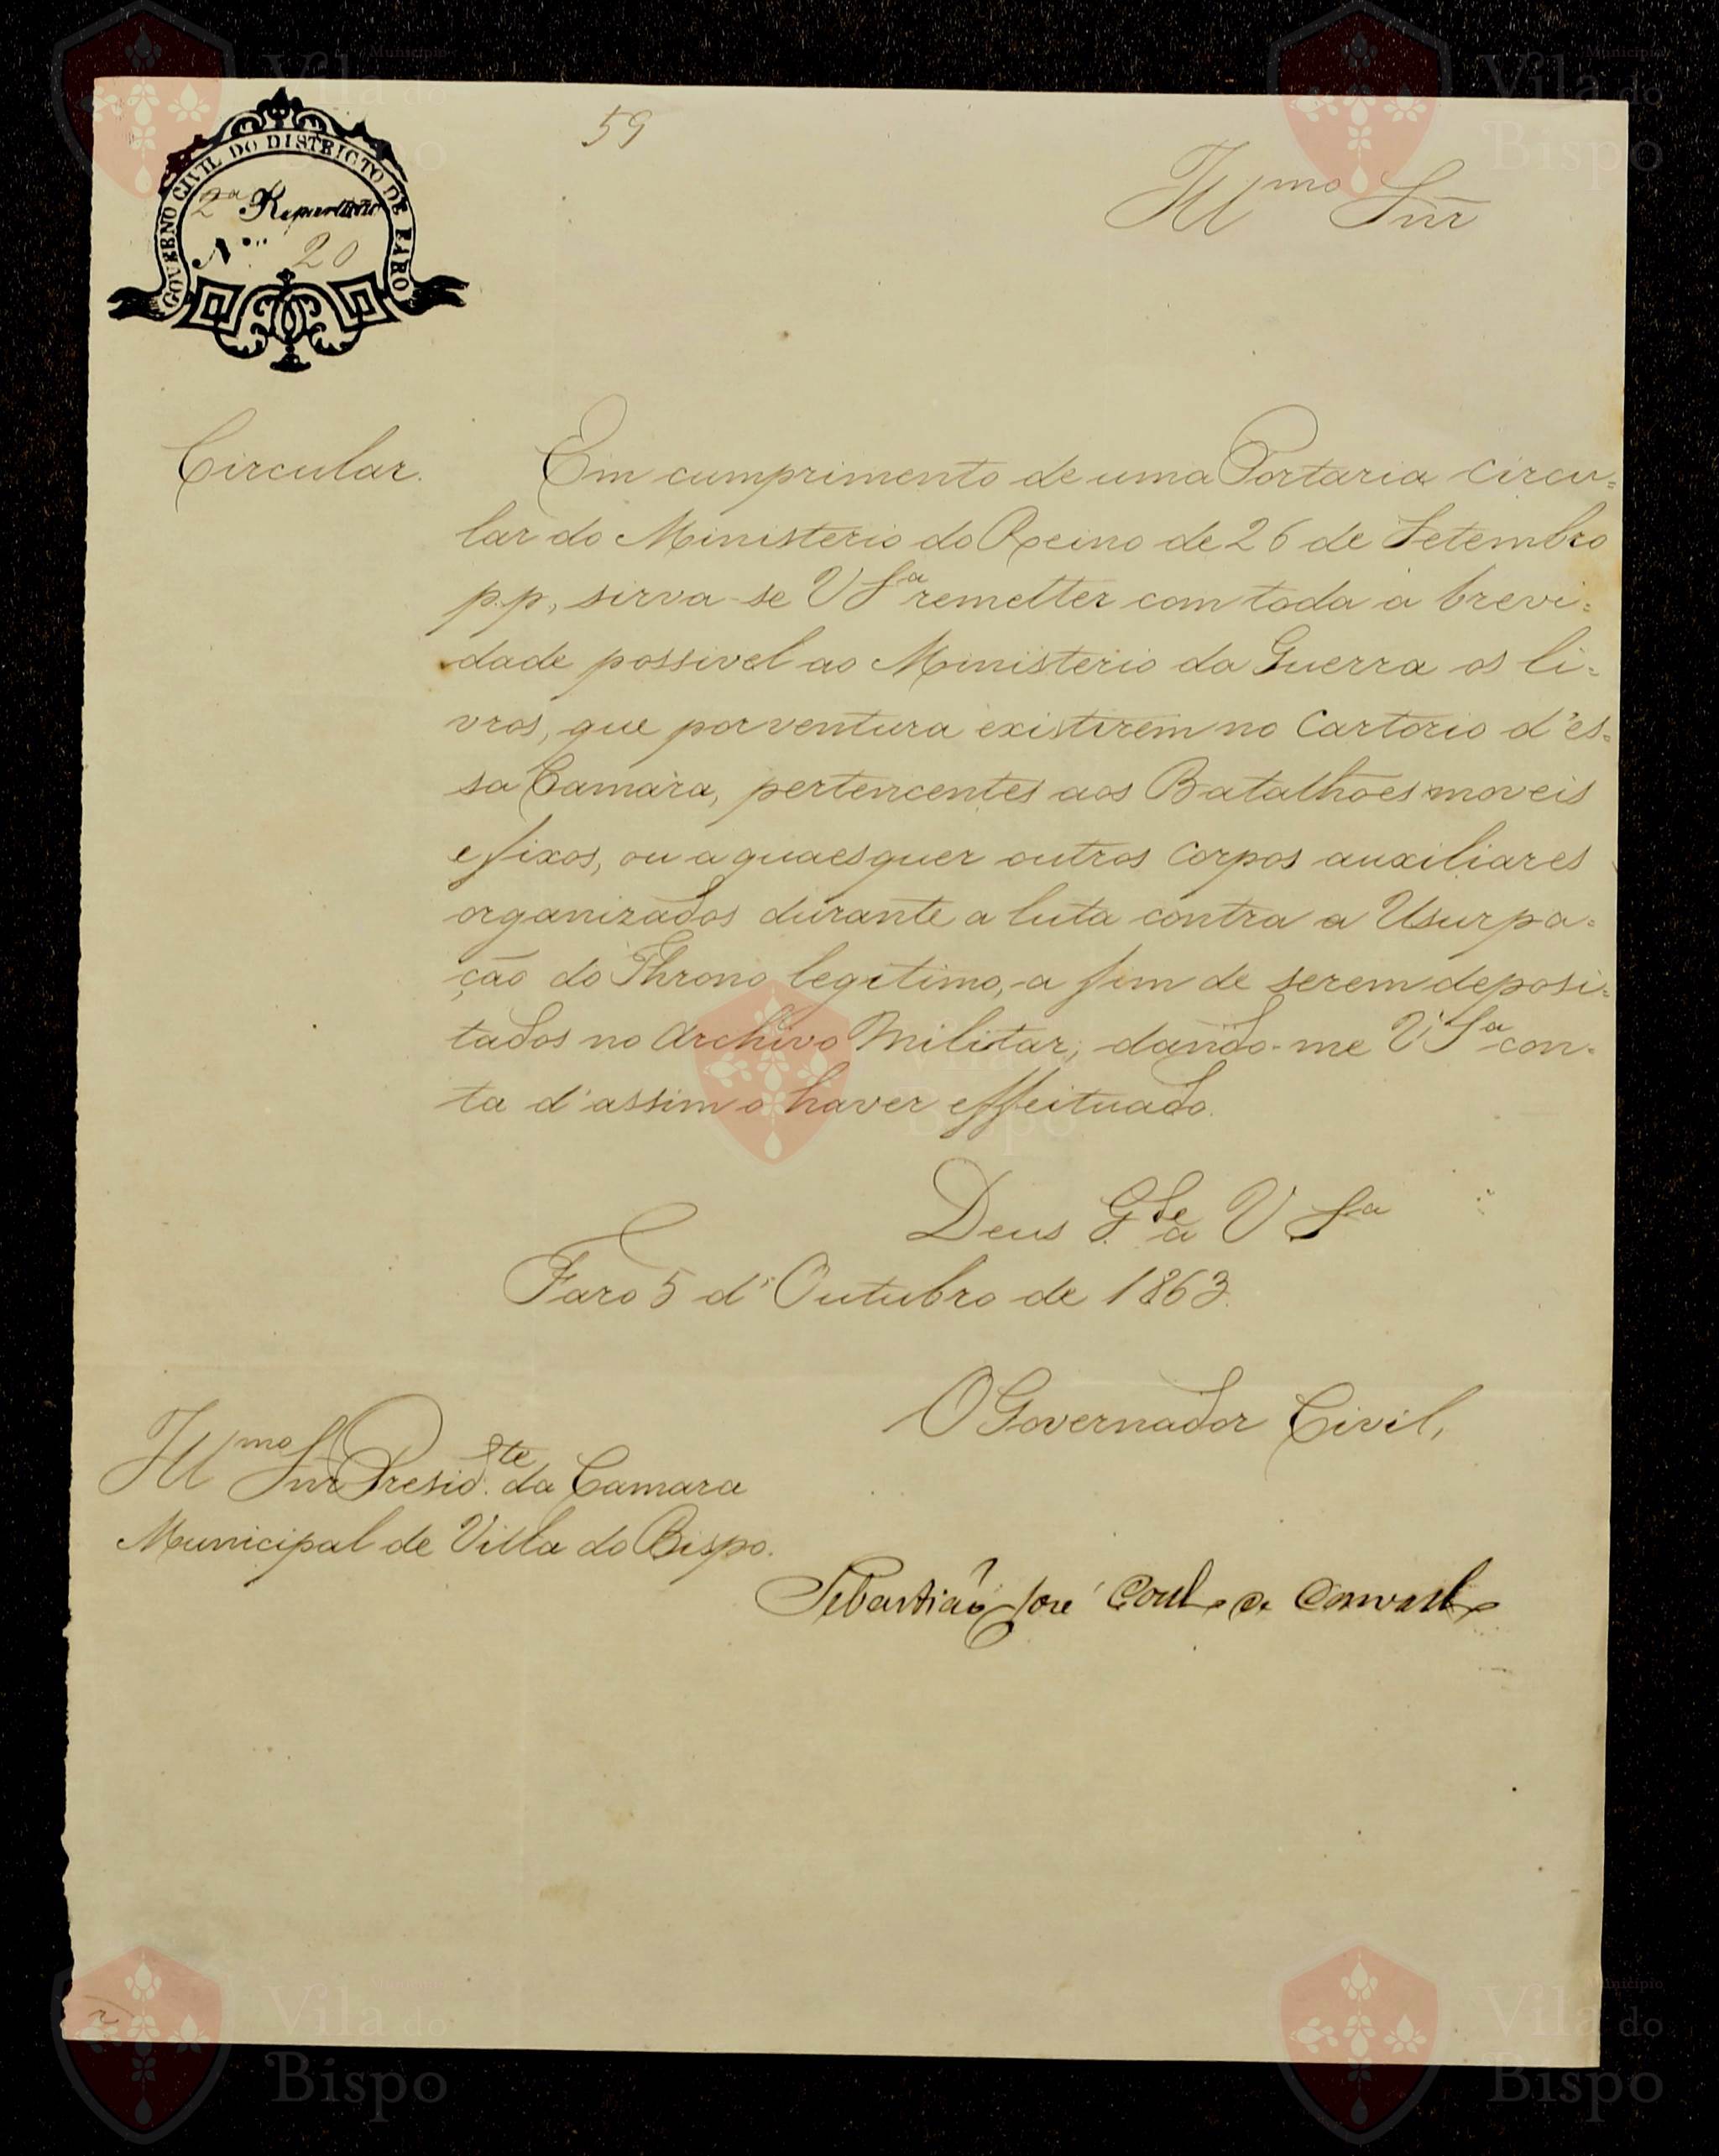 59
GOVERNO CIVIL DO DISTRICTO DE FARO
2ª Repartição
N.º 20
Illmo Snr
Circular.
Em cumprimento de uma Portaria circu=
lar do Ministerio do Reino de 26 de Setembro
p.p., sirva-se V Sª remetter com toda a brevi=
dade possivel ao Ministerio da Guerra os li=
vros, que porventura existirem no Cartorio d'es=
sa Camara, pertencentes aos Batalhões moveis
e fixos, ou a quaesquer outros Corpos auxiliares
organizados durante a luta contra a Usurpa=
ção do Throno legitimo, a fim de serem deposi=
tados no Archivo Militar; dando-me V Sª con=
ta d'assim o haver effeituado.
Deus G.de a V Sª
Faro 5 d'Outubro de 1863.
O Governador Civil,
Illmo Snr Presid.te da Camara
Municipal de Villa do Bispo.
Sebastião José
Município
Vila do
Bispo